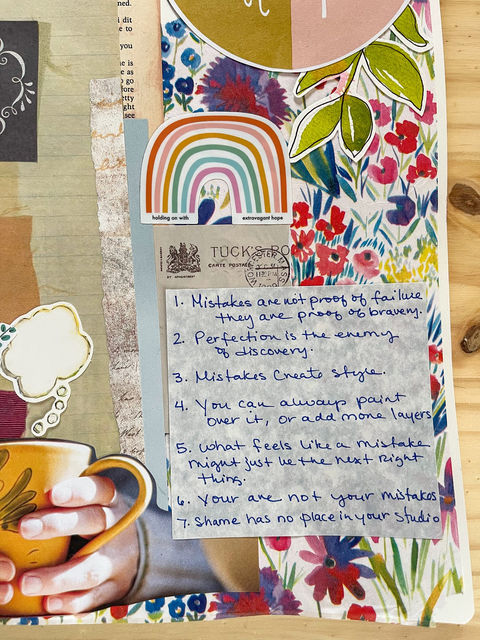 ned.
dit
e to
you
ne is
e as
o go
fore
etty
ght
see
holding on with extravagant hope
TUCK'S PO
CARTE POSTALE
BY APPOINTMENT
1. Mistakes are not proof of failure
they are proof of bravery.
2. Perfection is the enemy
of discovery.
3. Mistakes Create style.
4. You can always paint
over it, or add more layers
5. what feels like a mistake
might just be the next Right
thing.
6. Your are not your mistakes
7. Shame has no place in your Studio